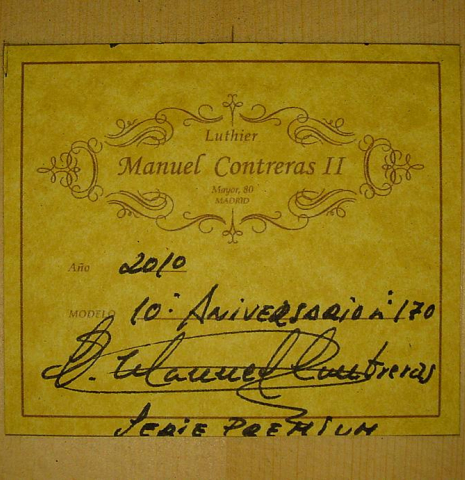 Luthier
Manuel Contreras II
Mayor, 80
MADRID
Año 2010
MODELO 10º ANIVERSARIO nº 170
M. Manuel Contreras
SERIE PREMIUM